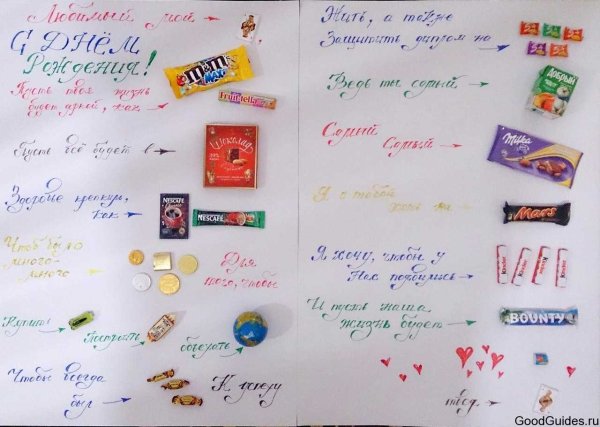 Любимый мой
С ДНЁМ
Рождения!
m&m's
MAXI
Пусть твоя жизнь
будет яркой, как
Fruittella
Пусть всё будет в
Шоколад
Здоровье крепким,
как
NESCAFÉ
NESCAFÉ
Чтоб было
много-
много
Для
того, чтобы
Купить
Построить
объехать
Чтобы всегда
был
К успеху
Жить, а также
Защитить диплом на
Ведь ты самый
Добрый
Самый Самый
Milka
Я с тобой
хоть на
Mars
Я хочу, чтобы у
Нас появились
Kinder
Kinder
Kinder
Kinder
И пусть наша
жизнь будет
BOUNTY
твоя
GoodGuides.ru